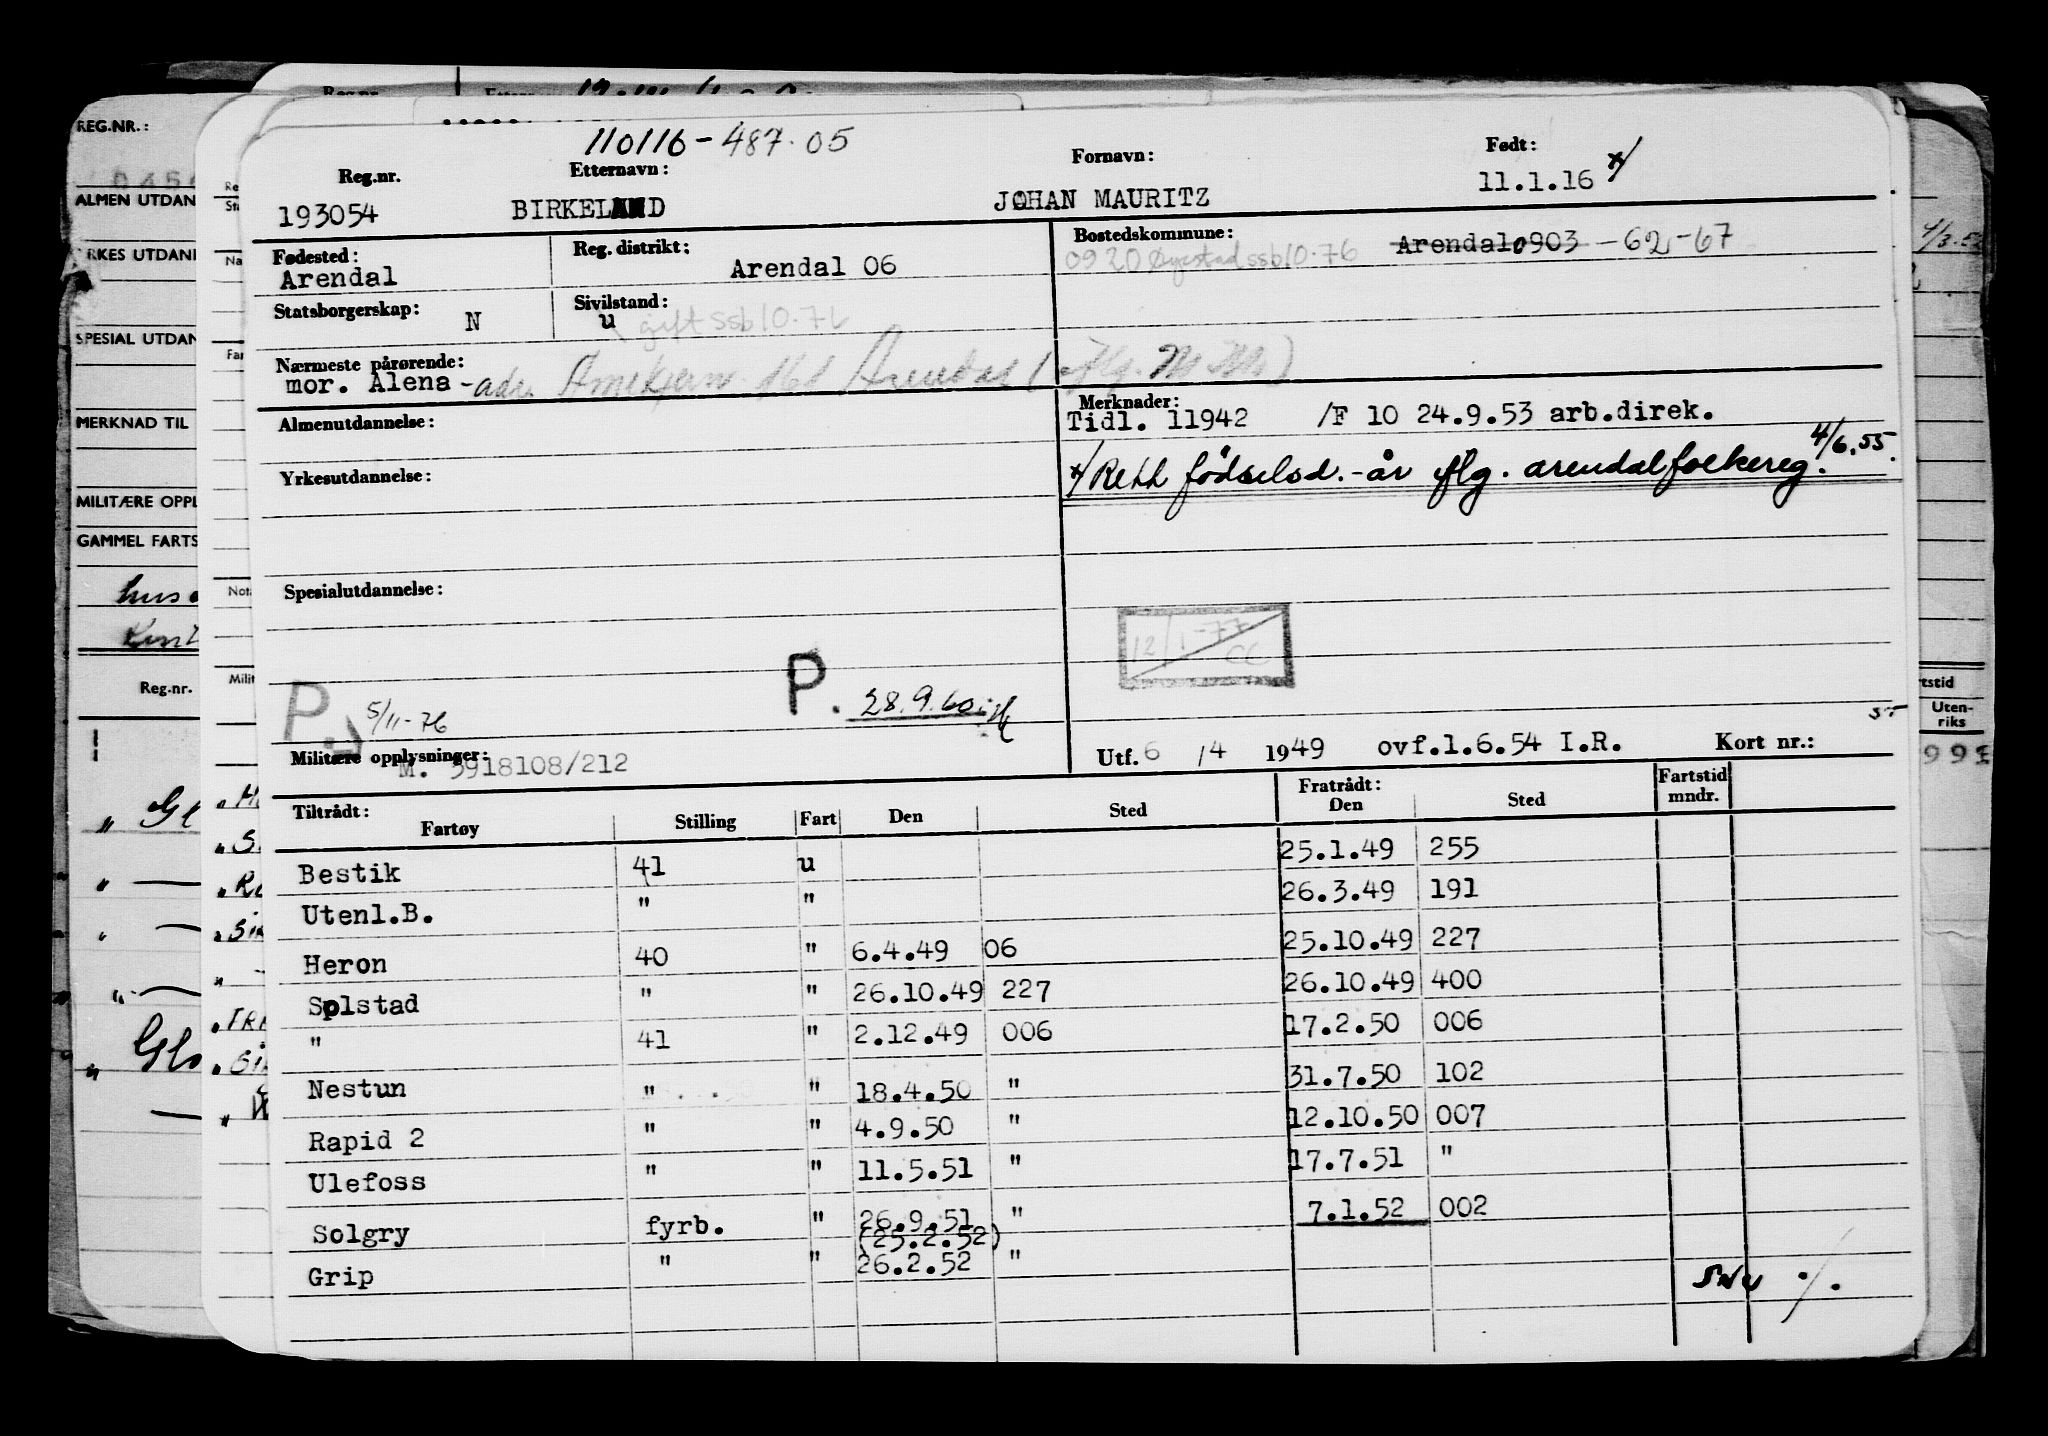 110116-487.05
Reg.nr. Etternavn: Fornavn: Født:
193054 BIRKELAND JOHAN MAURITZ 11.1.16 x/
Fødested: Reg. distrikt: Bostedskommune:
Arendal Arendal 06 0920 Øyestad ssb10.76 Arendal 0903 -62-67
Statsborgerskap: N Sivilstand: u gift ssb10.76
Nærmeste pårørende:
mor. Alena - adr. Arendal
Almenutdannelse: Merknader:
Tidl. 11942 /F 10 24.9.53 arb.direk.
Yrkesutdannelse: x/ Rett fødselsd.-år flg. arendal folkereg. 4/6.55.
Spesialutdannelse:
12/1-77 CC
P. 5/11-76 P. 28.9.60
Militære opplysninger: M. 3918108/212 Utf. 6 /4 1949 ovf.1.6.54 I.R. Kort nr.:
Tiltrådt: Fratrådt: Fartstid mndr.
Fartøy Stilling Fart Den Sted Den Sted
Bestik 41 u 25.1.49 255
Utenl.B. " " 26.3.49 191
Heron 40 " 6.4.49 06 25.10.49 227
Solstad " " 26.10.49 227 26.10.49 400
" 41 " 2.12.49 006 17.2.50 006
Nestun " " 18.4.50 " 31.7.50 102
Rapid 2 " " 4.9.50 " 12.10.50 007
Ulefoss " " 11.5.51 " 17.7.51 "
Solgry fyrb. " 26.9.51 " 7.1.52 002
(25.2.52)
Grip " " 26.2.52 "
snu ./.
REG.NR.:
ALMEN UTDAN
RKES UTDAN
SPESIAL UTDAN
MERKNAD TIL
MILITÆRE OPPL
GAMMEL FARTS
Reg.nr.
tstid
Uten-
riks